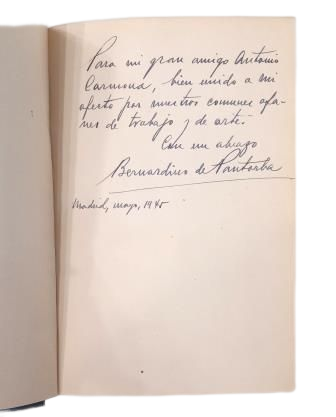 Para mi gran amigo Antonio
Carmona, bien unido a mi
afecto por nuestros comunes afa-
nes de trabajo y de arte.
Con un abrazo
Bernardino de Pantorba
Madrid, mayo, 1945